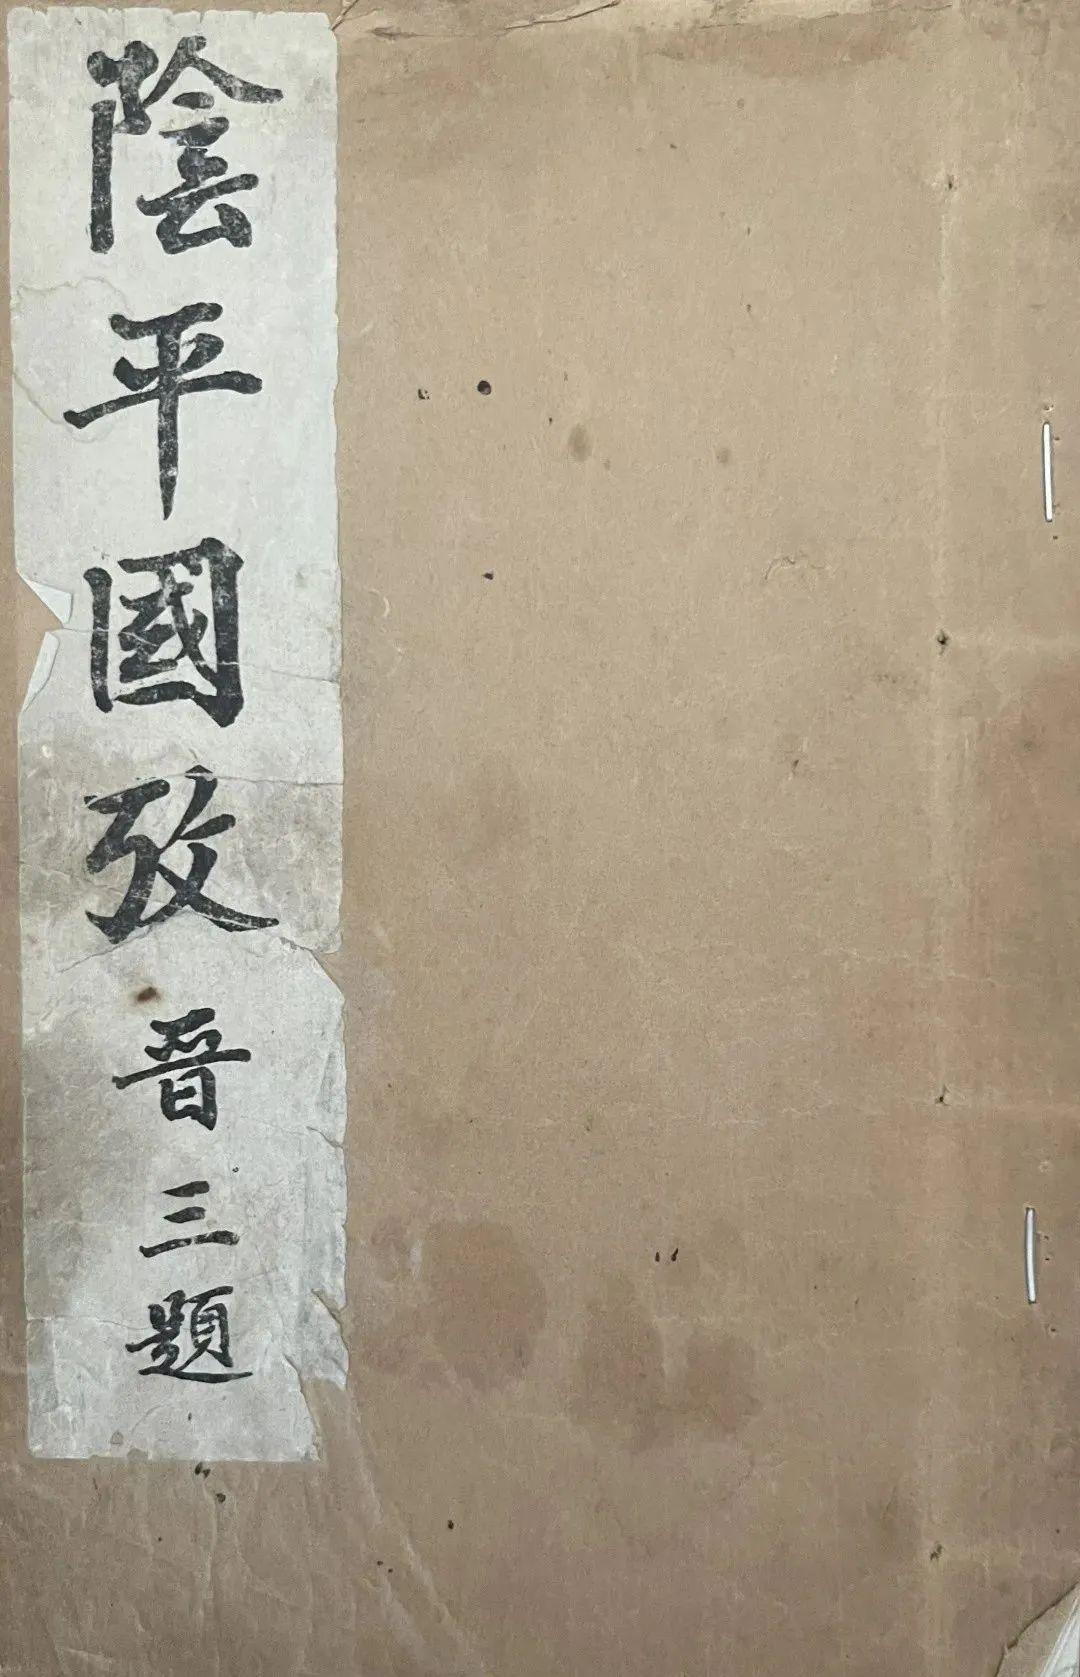 陰平國攷
晉三題